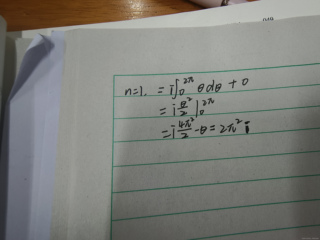 n=1. = i∫₀^{2π} θdθ + 0
= i θ²/2 |₀^{2π}
= i 4π²/2 - 0 = 2π² i